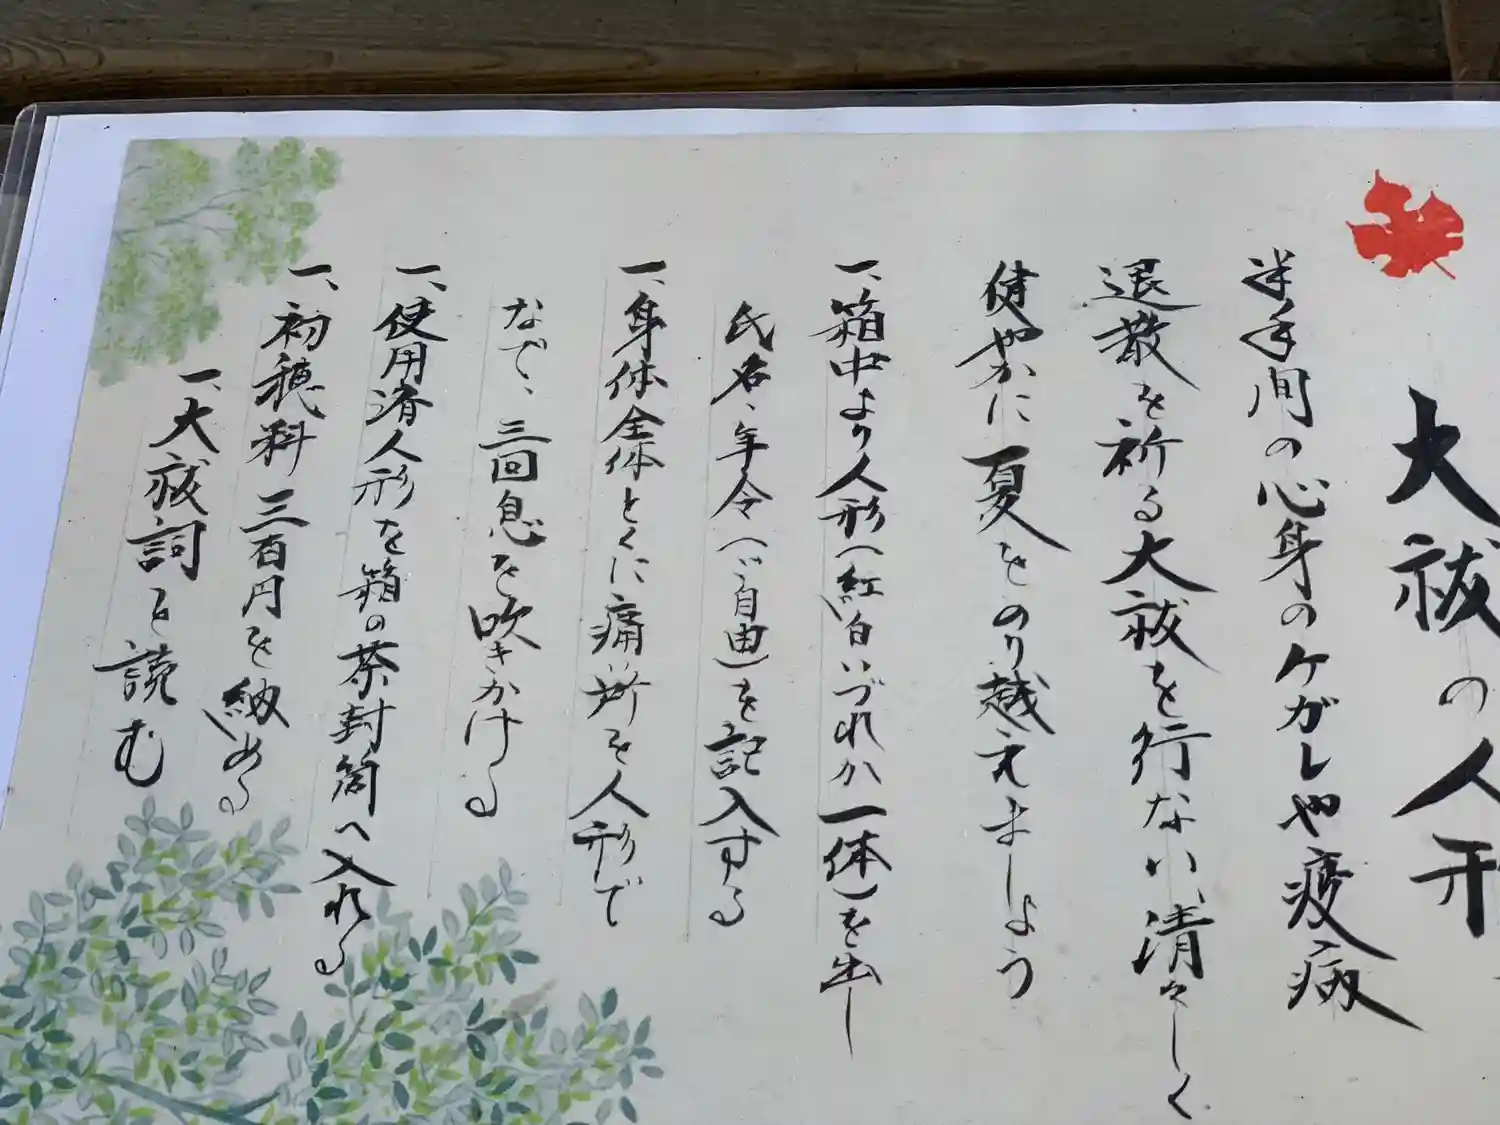 大祓の人形
半年間の心身のケガレや疫病
退散を祈る大祓を行ない、清々しく
健やかに夏をのり越えましょう
一、箱中より人形(紅白いづれか一体)を出し
氏名、年令(ご自由)を記入する
一、身体全体とくに痛い所を人形で
なで、三回息を吹きかける
一、使用済人形を箱の茶封筒へ入れる
一、初穂料 三百円を納める
一、大祓詞を読む